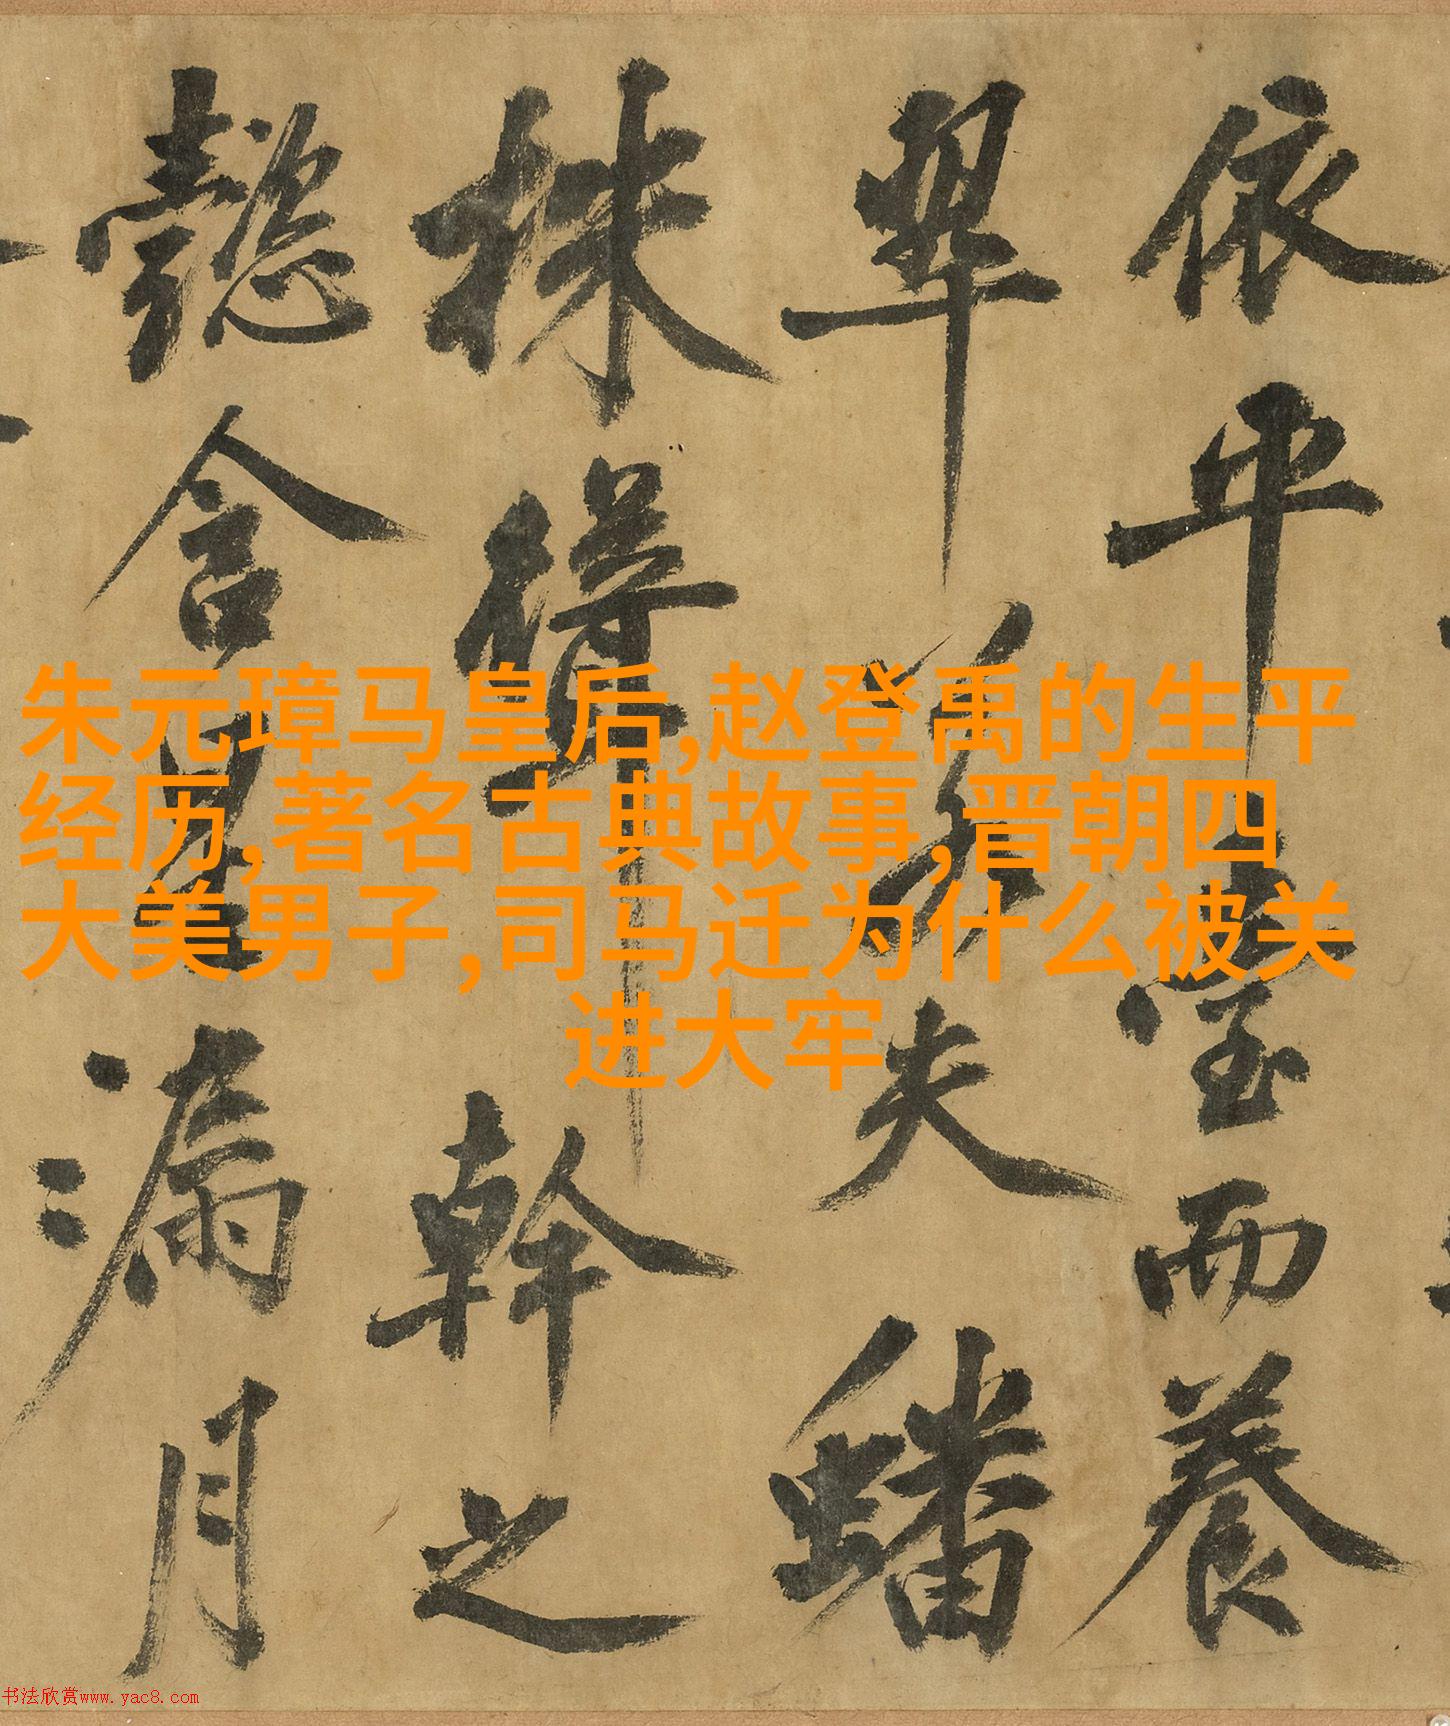 依平臺而養
翠若夫蟠
株聳幹之
懿含星漏月
朱元璋马皇后,赵登禹的生平
经历,著名古典故事,晋朝四
大美男子,司马迁为什么被关
进大牢
书法欣赏www.yac8.com